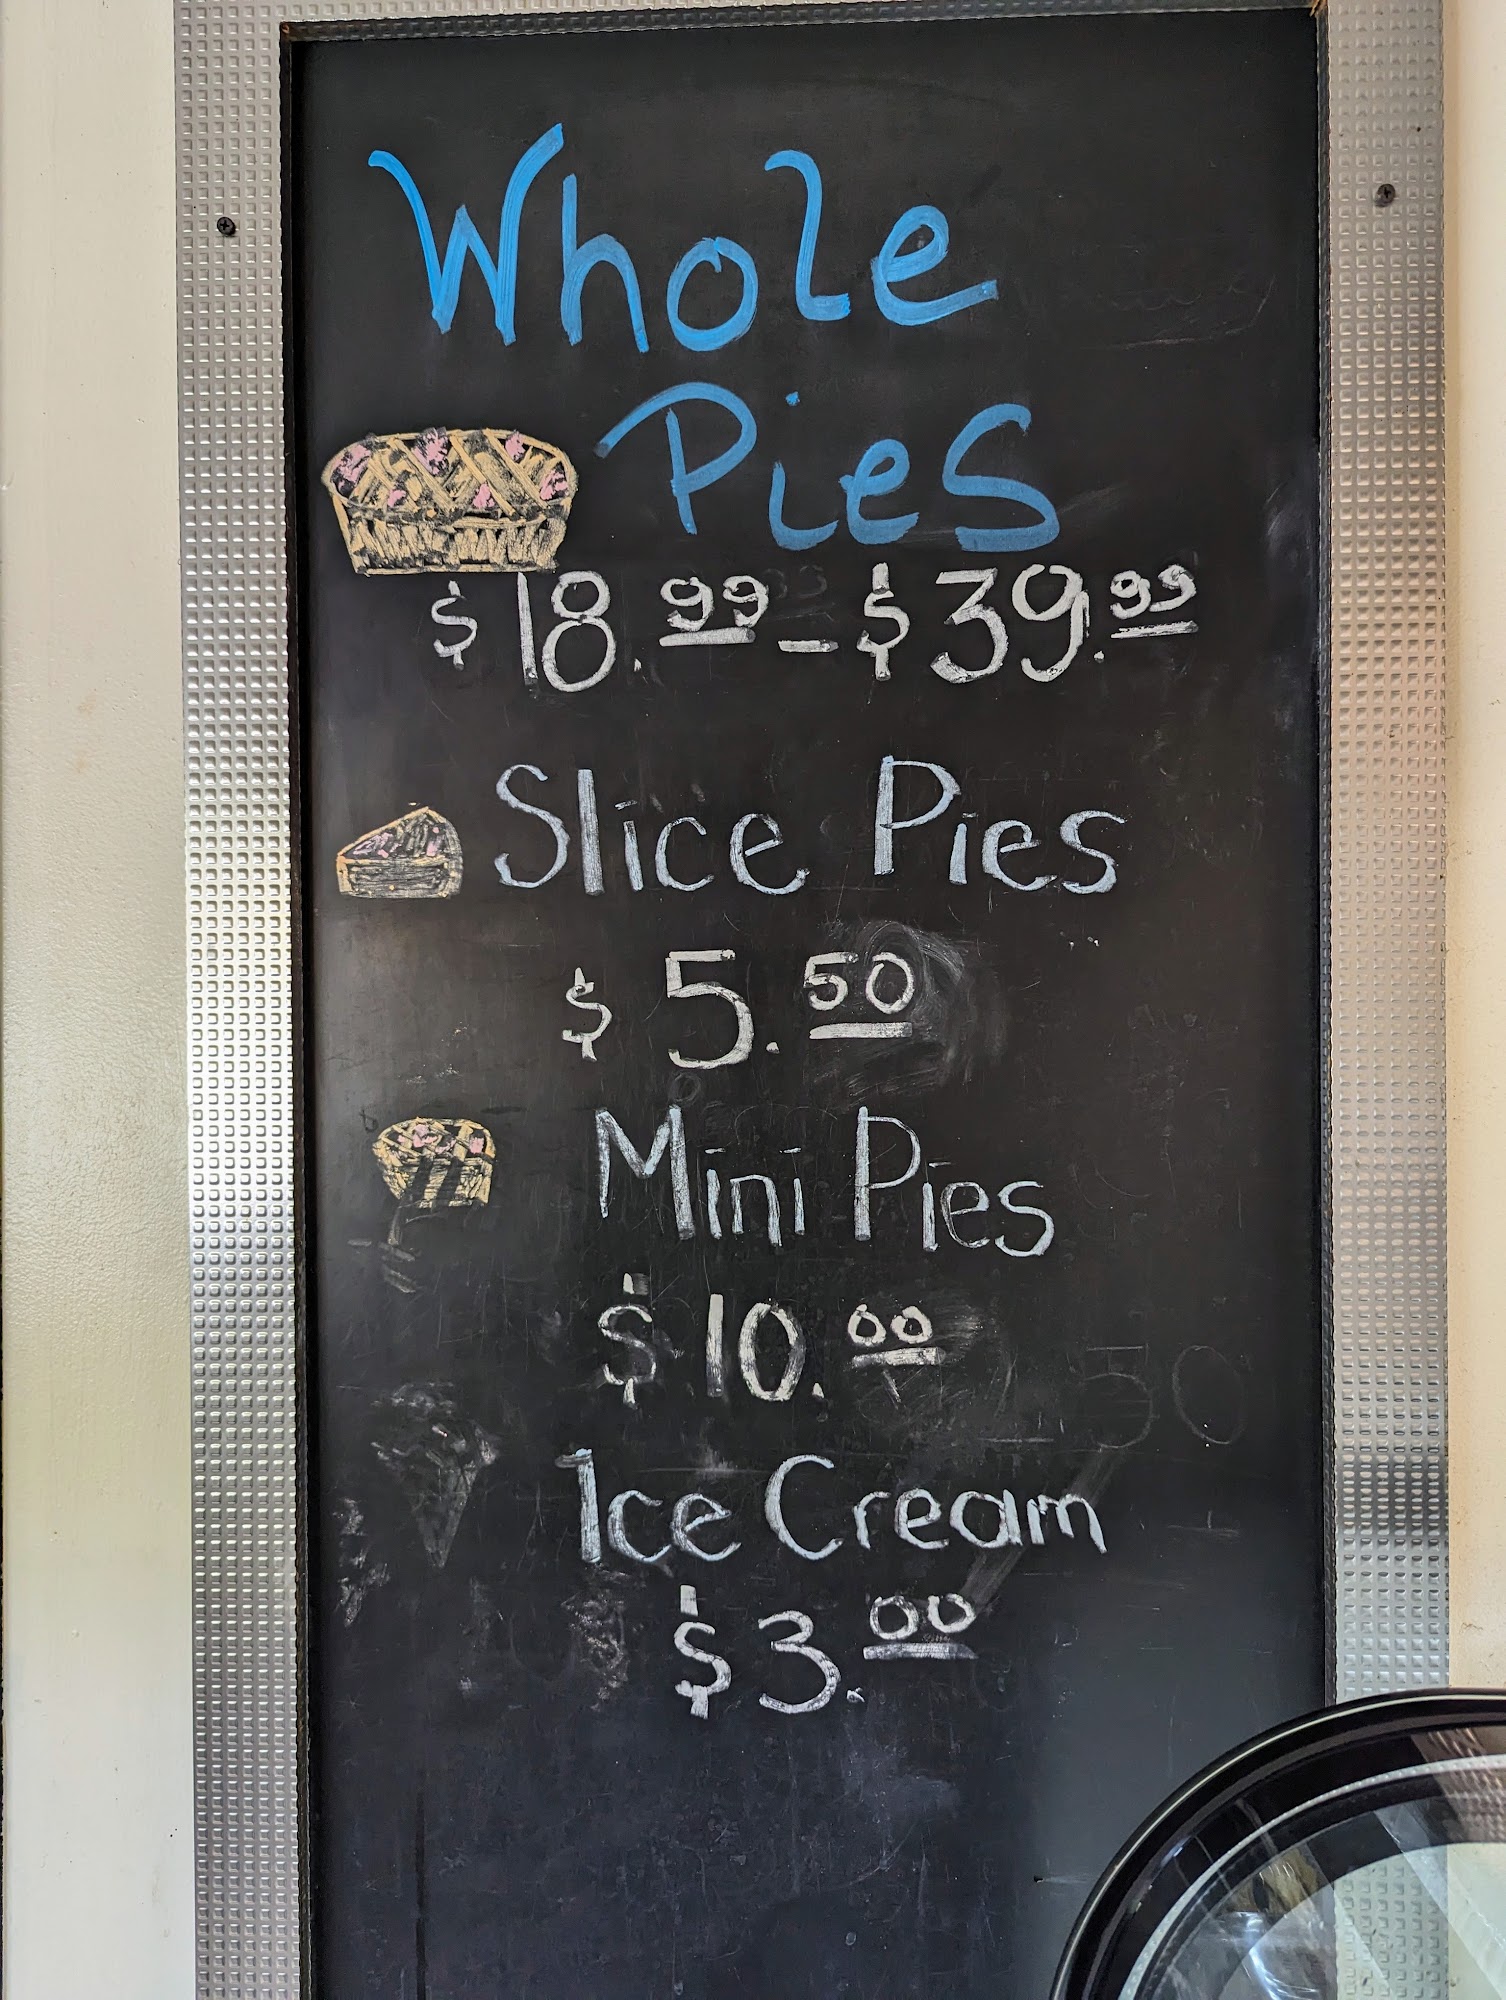 Whole
Pies
$18.99 - $39.99
Slice Pies
$5.50
Mini Pies
$10.00
Ice Cream
$3.00